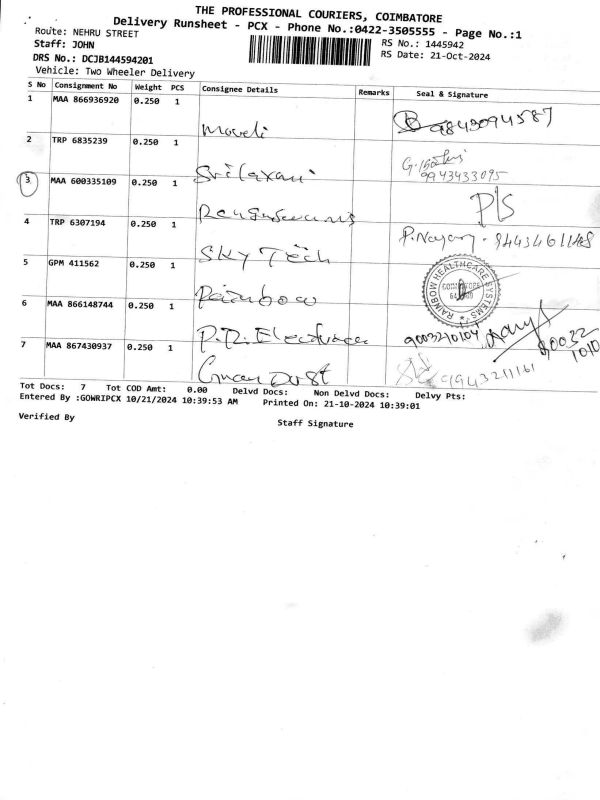 THE PROFESSIONAL COURIERS, COIMBATORE
Delivery Runsheet - PCX - Phone No.:0422-3505555 - Page No.:1
Route: NEHRU STREET
RS No.: 1445942
Staff: JOHN
RS Date: 21-Oct-2024
DRS No.: DCJB144594201
Vehicle: Two Wheeler Delivery
S No Consignment No Weight PCS Consignee Details Remarks Seal & Signature
1 MAA 866936920 0.250 1
9843094587
2 TRP 6835239 0.250 1
Srilaxmi 9943433095
3 MAA 600335109 0.250 1
P/S
4 TRP 6307194 0.250 1
SKY Tech
5 GPM 411562 0.250 1
Rainbow
RAINBOW HEALTHCARE SYSTEMS
6 MAA 866148744 0.250 1
P.R. Electricals 9003210104
7 MAA 867430937 0.250 1
9943211161
Tot Docs: 7 Tot COD Amt: 0.00 Delvd Docs: Non Delvd Docs: Delvy Pts:
Entered By :GOWRIPCX 10/21/2024 10:39:53 AM Printed On: 21-10-2024 10:39:01
Verified By
Staff Signature